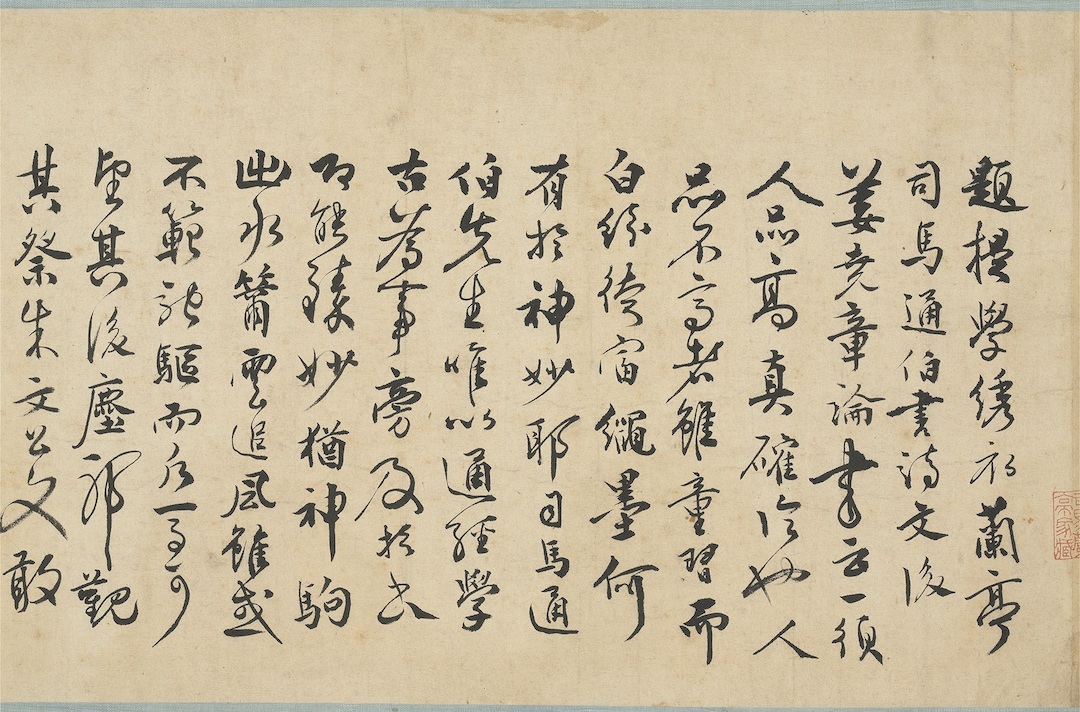 題摸學綉蘭亭
司馬通伯書詩文後
姜堯章論書云一須
人品高真確論也人
品不高者雖童習而
白紛徒窘繩墨何
有於神妙耶司馬通
伯先生唯以通經學
古為事旁及於書
即能臻妙猶神駒
水籋雲追風雖或
不範馳驅而一可
望其後塵耶觀
其祭朱文公文敢